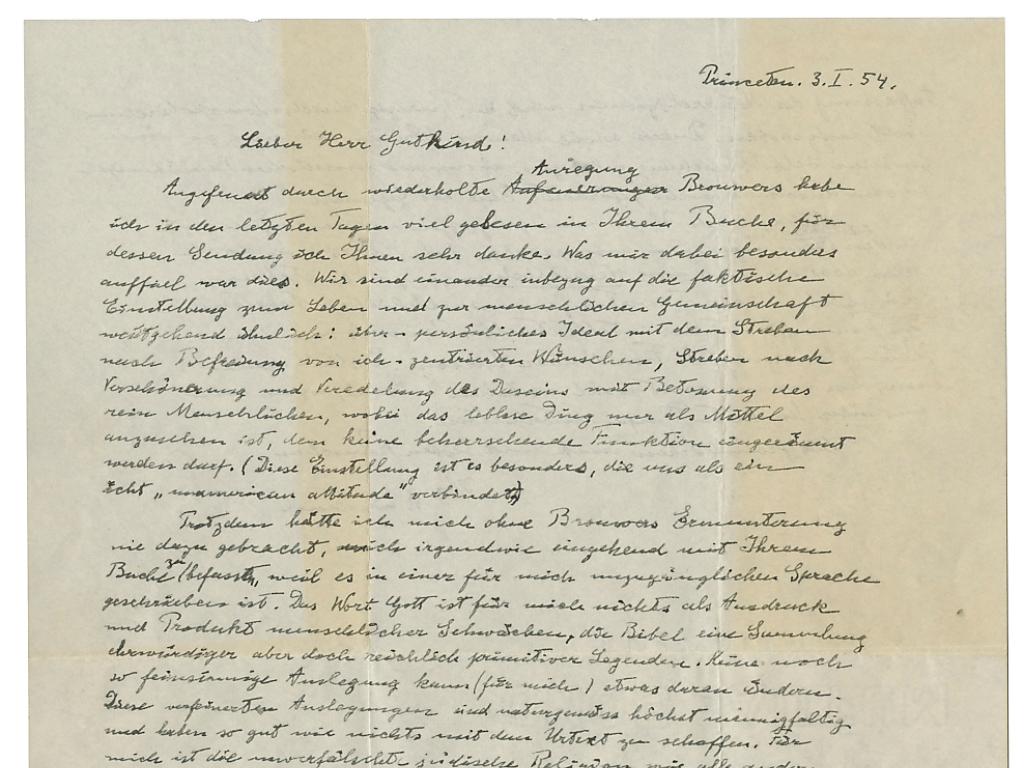 Princeton. 3. I. 54.
Lieber Herr Gutkind!
Anregung
Angefeuert durch wiederholte Brouwers habe
ich in den letzten Tagen viel gelesen in Ihrem Buche, für
dessen Sendung ich Ihnen sehr danke. Was mir dabei besonders
auffiel war dies. Wir sind einander inbezug auf die faktische
Einstellung zum Leben und zur menschlichen Gemeinschaft
weitgehend ähnlich: über-persönliches Ideal mit dem Streben
nach Befreiung von ich-zentrierten Wünschen, Streben nach
Verschönerung und Veredelung des Daseins mit Betonung des
rein Menschlichen, wobei das leblose Ding nur als Mittel
anzusehen ist, dem keine beherrschende Funktion eingeräumt
werden darf. (Diese Einstellung ist es besonders, die uns als ein
echt „unamerican attitude" verbindet)
Trotzdem hätte ich mich ohne Brouwers Ermunterung
nie dazu gebracht, mich irgendwie eingehend mit Ihrem
Buche zu befassen, weil es in einer für mich unzugänglichen Sprache
geschrieben ist. Das Wort Gott ist für mich nichts als Ausdruck
und Produkt menschlicher Schwächen, die Bibel eine Sammlung
ehrwürdiger aber doch reichlich primitiver Legenden. Keine noch
so feinsinnige Auslegung kann (für mich) etwas daran ändern.
Diese verfeinerten Auslegungen sind naturgemäss höchst mannigfaltig
und haben so gut wie nichts mit dem Urtext zu schaffen. Für
mich ist die unverfälschte jüdische Religion wie alle anderen